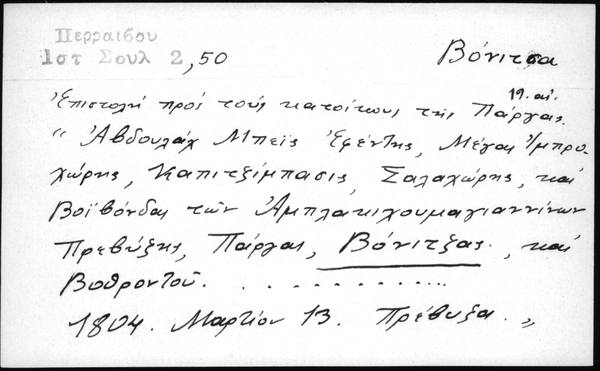 Περραιβου
Ιστ Σουλ 2,50 Βόνιτσα
19. αἰ.
Ἐπιστολή πρός τούς κατοίκους τῆς Πάργας.
"Ἀβδουλάχ Μπεΐς Ἐφέντης, Μέγας Ἰμπρο-
χώρης, Καπιτζίμπασις, Σαλαχώρης, καί
Βοϊβόνδας τῶν Ἀμπλακιχουμαγιαννίνων
Πρεβύζης, Πάργας, Βόνιτζας, καί
Βοθροντοῦ. . . . . . . . . . . . .
1804. Μαρτίου 13. Πρέβυζα. "